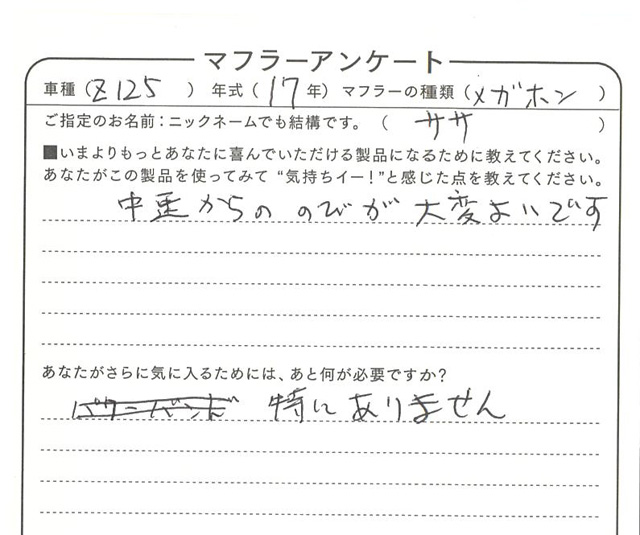 マフラーアンケート
車種（Z125　　）　年式（17年）マフラーの種類（メガホン　）
ご指定のお名前：ニックネームでも結構です。（　ササ　　　　）
■いまよりもっとあなたに喜んでいただける製品になるために教えてください。
あなたがこの製品を使ってみて“気持ちイー！”と感じた点を教えてください。
中速からの のびが 大変よいです
あなたがさらに気に入るためには、あと何が必要ですか？
パワーバンド 特にありません